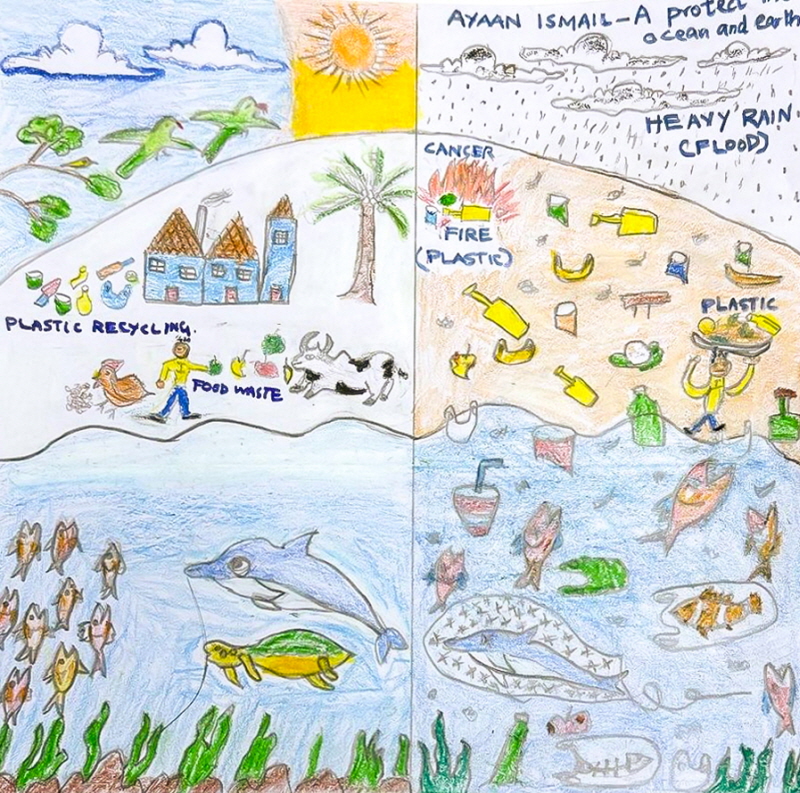 AYAAN ISMAIL-A protect the
ocean and earth
HEAVY RAIN
(FLOOD)
CANCER
FIRE
(PLASTIC)
PLASTIC
PLASTIC RECYCLING.
FOOD WASTE